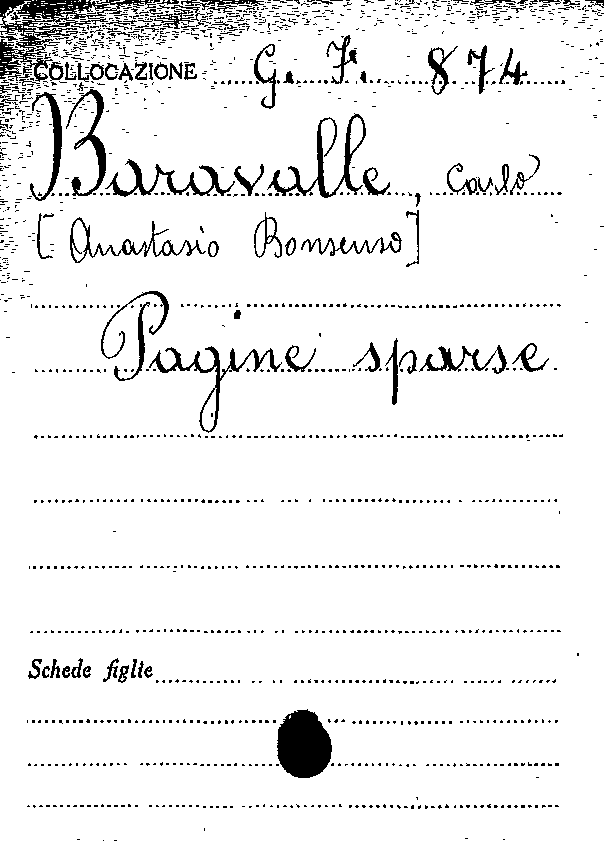 COLLOCAZIONE G. F. 874
Baravalle, Carlo
[Anastasio Bonsenso]
Pagine sparse
Schede figlie